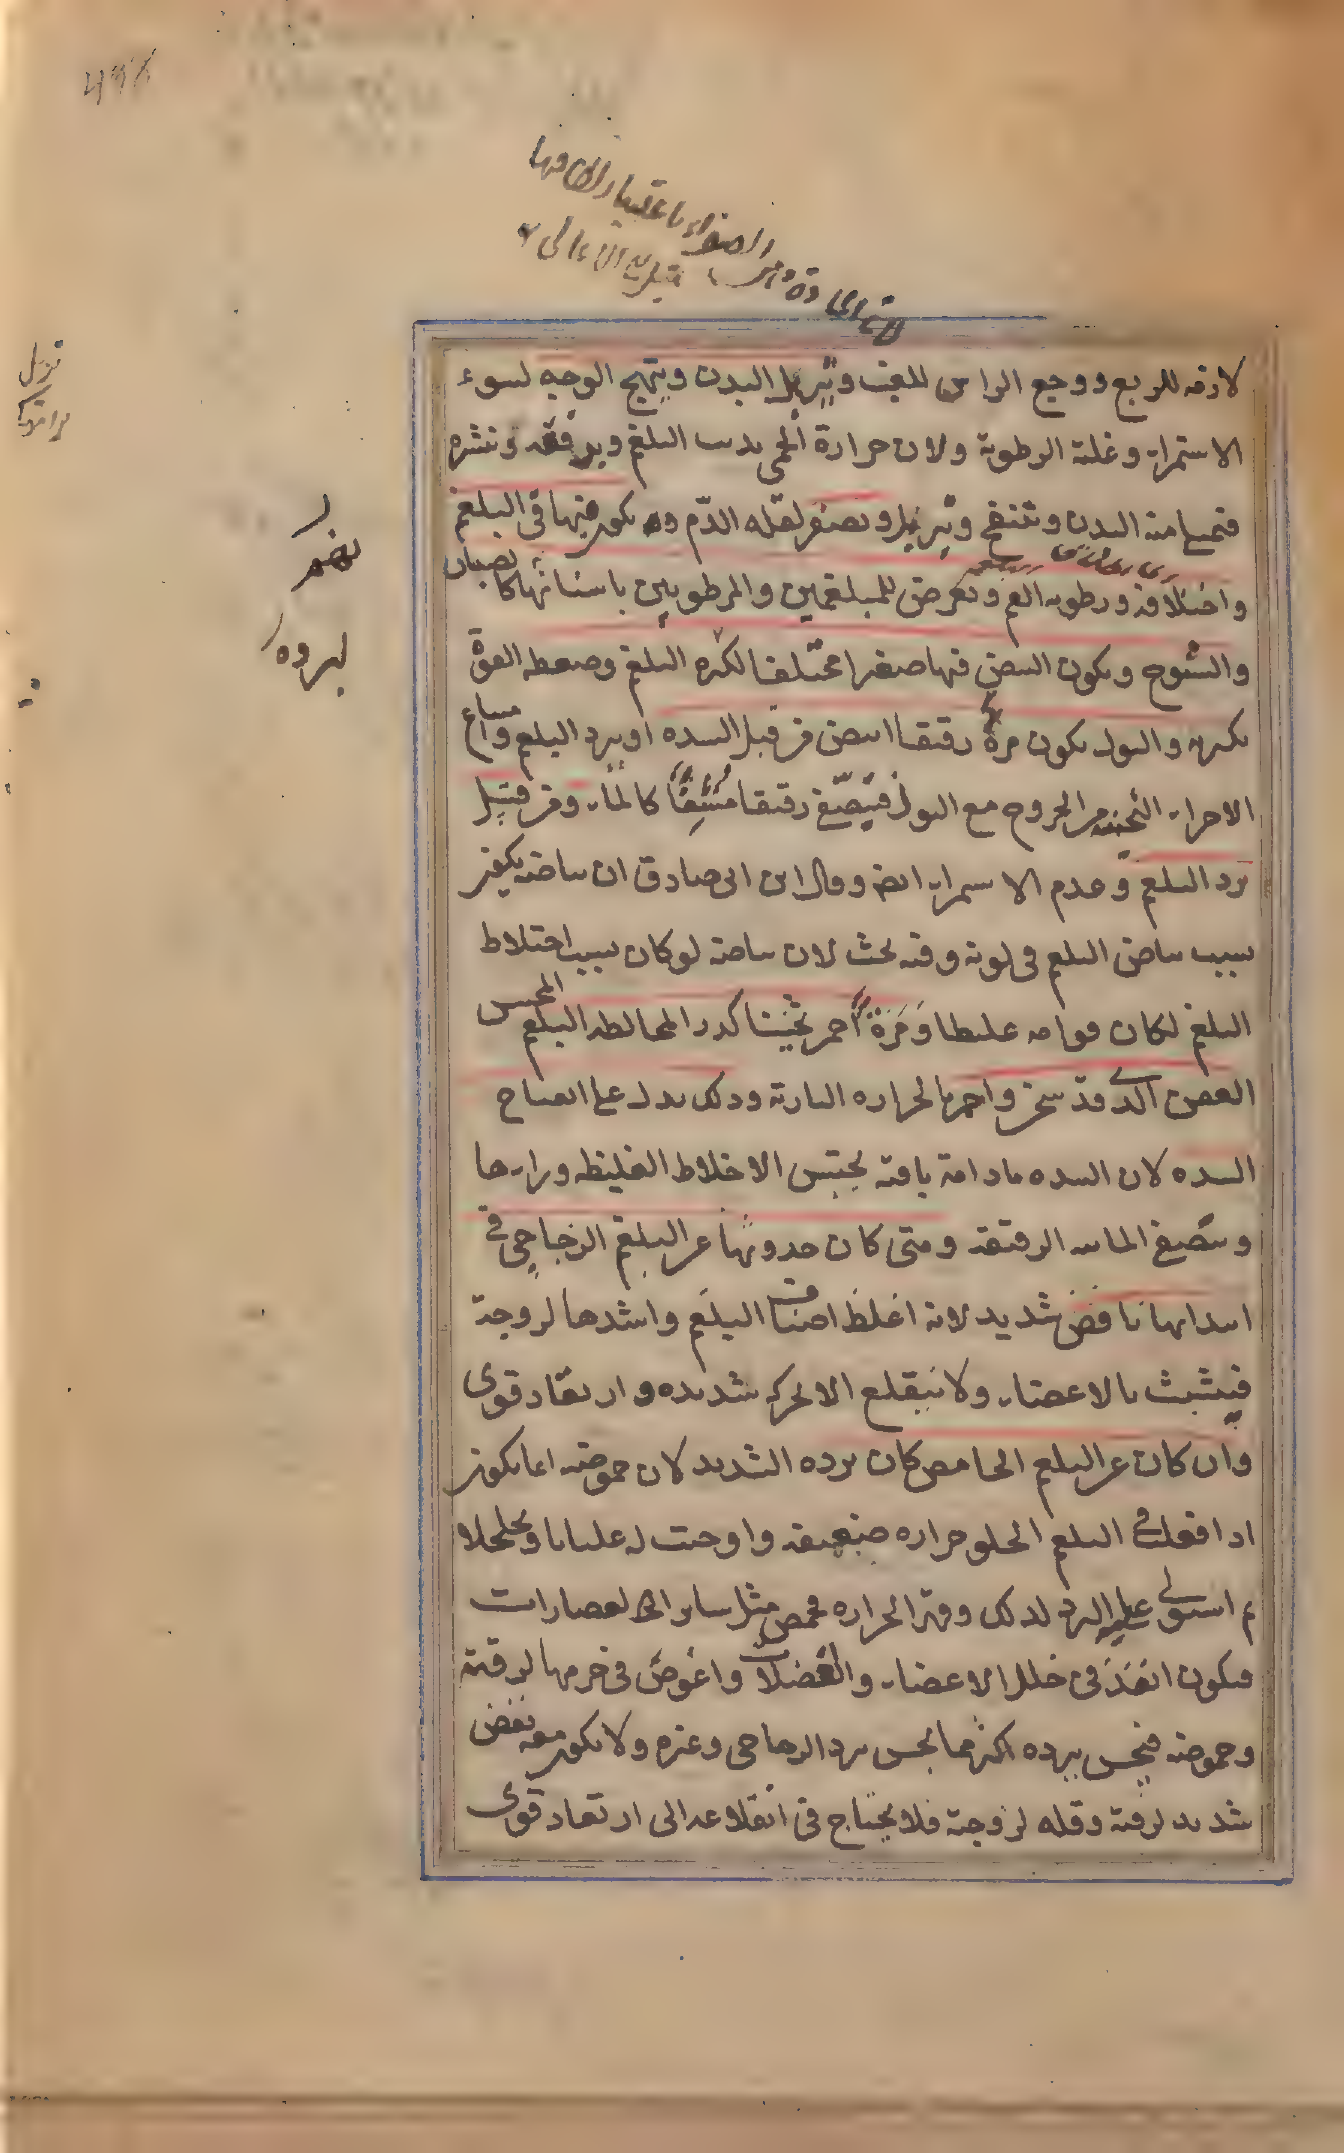 لازمه للربع ووجع الراس للغب وتربل البدن وتهيج الوجه لسوء
الاستمراء وغلبة الرطوبة ولان حرارة الحمى يذيب البلغم ويرققه وتنشره
فيمتلئ منه البدن وتنتفخ ويتربل وتصفر لقله الدم وقد يكون فيها قئ البلغم
واختلافه ورطوبه الفم وتعرض للمبلغمين والمرطوبين باسنانهم كالصبيان
والشيوخ ويكون النبض فيها صغيرا مختلفا لكثره البلغم وضغطه القوة
بكثرته والبول يكون مرة رقيقا ابيض من قبل السده او برد البلغم وامتناع
الاجزاء الثخينه من الخروج مع البول فيتصفى رقيقا مشفا كالماء ومن قبل
برد البلغم وعدم الاستمراء ايضا وقال ابن ابى صادق ان بياضه يكون
بسبب بياض البلغم فى لونه وفيه بحث لان بياضه لو كان بسبب اختلاط
البلغم لكان قوامه غليظا ومرة احمر ثخينا كدرا لمخالطه البلغم المحتبس
العفن الذى قد سخن واحمر بالحراره الناريه وذلك يدل على انفتاح
السده لان السده مادامة باقيه يحتبس الاخلاط الغليظه وراءها
ويتصفى المائيه الرقيقه ومتى كان حدوثها عن البلغم الزجاجى فى
ابتدائها نافض شديد لانه اغلظ اصناف البلغم واشدها لزوجة
فيتشبث بالاعضاء ولا ينقلع الا بحركه شديده وارتعاد قوى
وان كان عن البلغم الحامض كان برده الشديد لان حموضته انما يكون
اذا فعلت فى البلغم الحلو حراره ضعيفه واوجبت له غليانا وتخلخلا
ثم استولى عليه البرد لذلك وقهر الحراره فحمض مثل ساير العصارات
فيكون انفذ فى خلل الاعضاء والعضلات واغوص فى جرمها لرقته
وحموضته فيحس ببرده اكثر مما يحس ببرد الزجاجى وغيره ولا يكون معه نفض
شديد لرقته وقله لزوجته فلا يحتاج فى انقلاعه الى ارتعاد قوى